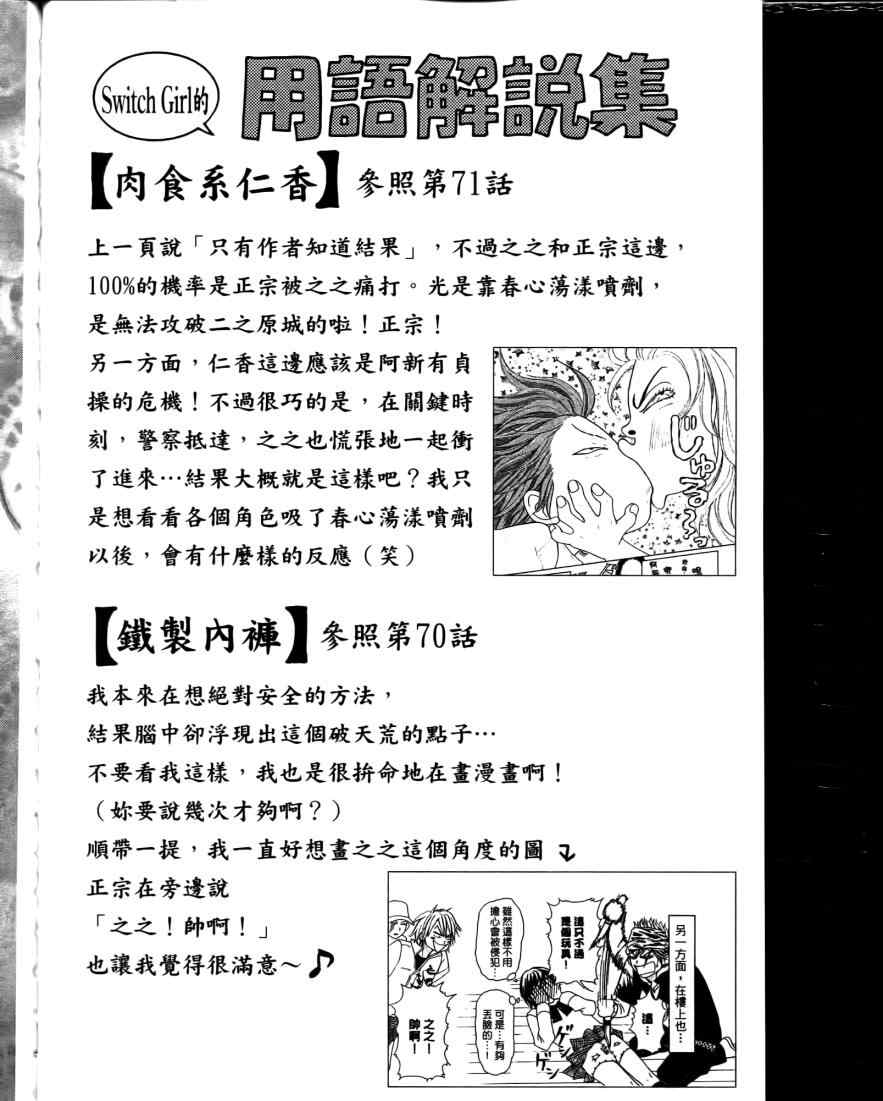 Switch Girl的
用語解說集
【肉食系仁香】參照第71話
上一頁說「只有作者知道結果」，不過之之和正宗這邊，
100%的機率是正宗被之之痛打。光是靠春心蕩漾噴劑，
是無法攻破二之原城的啦！正宗！
另一方面，仁香這邊應該是阿新有貞
操的危機！不過很巧的是，在關鍵時
刻，警察抵達，之之也慌張地一起衝
了進來…結果大概就是這樣吧？我只
是想看看各個角色吸了春心蕩漾噴劑
以後，會有什麼樣的反應（笑）
じゅる～っ
【鐵製內褲】參照第70話
我本來在想絕對安全的方法，
結果腦中卻浮現出這個破天荒的點子…
不要看我這樣，我也是很拚命地在畫漫畫啊！
（妳要說幾次才夠啊？）
順帶一提，我一直好想畫之之這個角度的圖
正宗在旁邊說
「之之！帥啊！」
也讓我覺得很滿意～♪
另一方面，在樓上也…
這只不過
是個玩具！
這…
雖然這樣不用
擔心會被侵犯…
可是…有夠
丟臉的…！
之之！
帥啊！
ゲン
ゲン